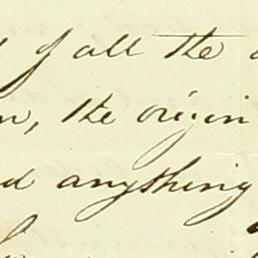 of all the
the origin
anything